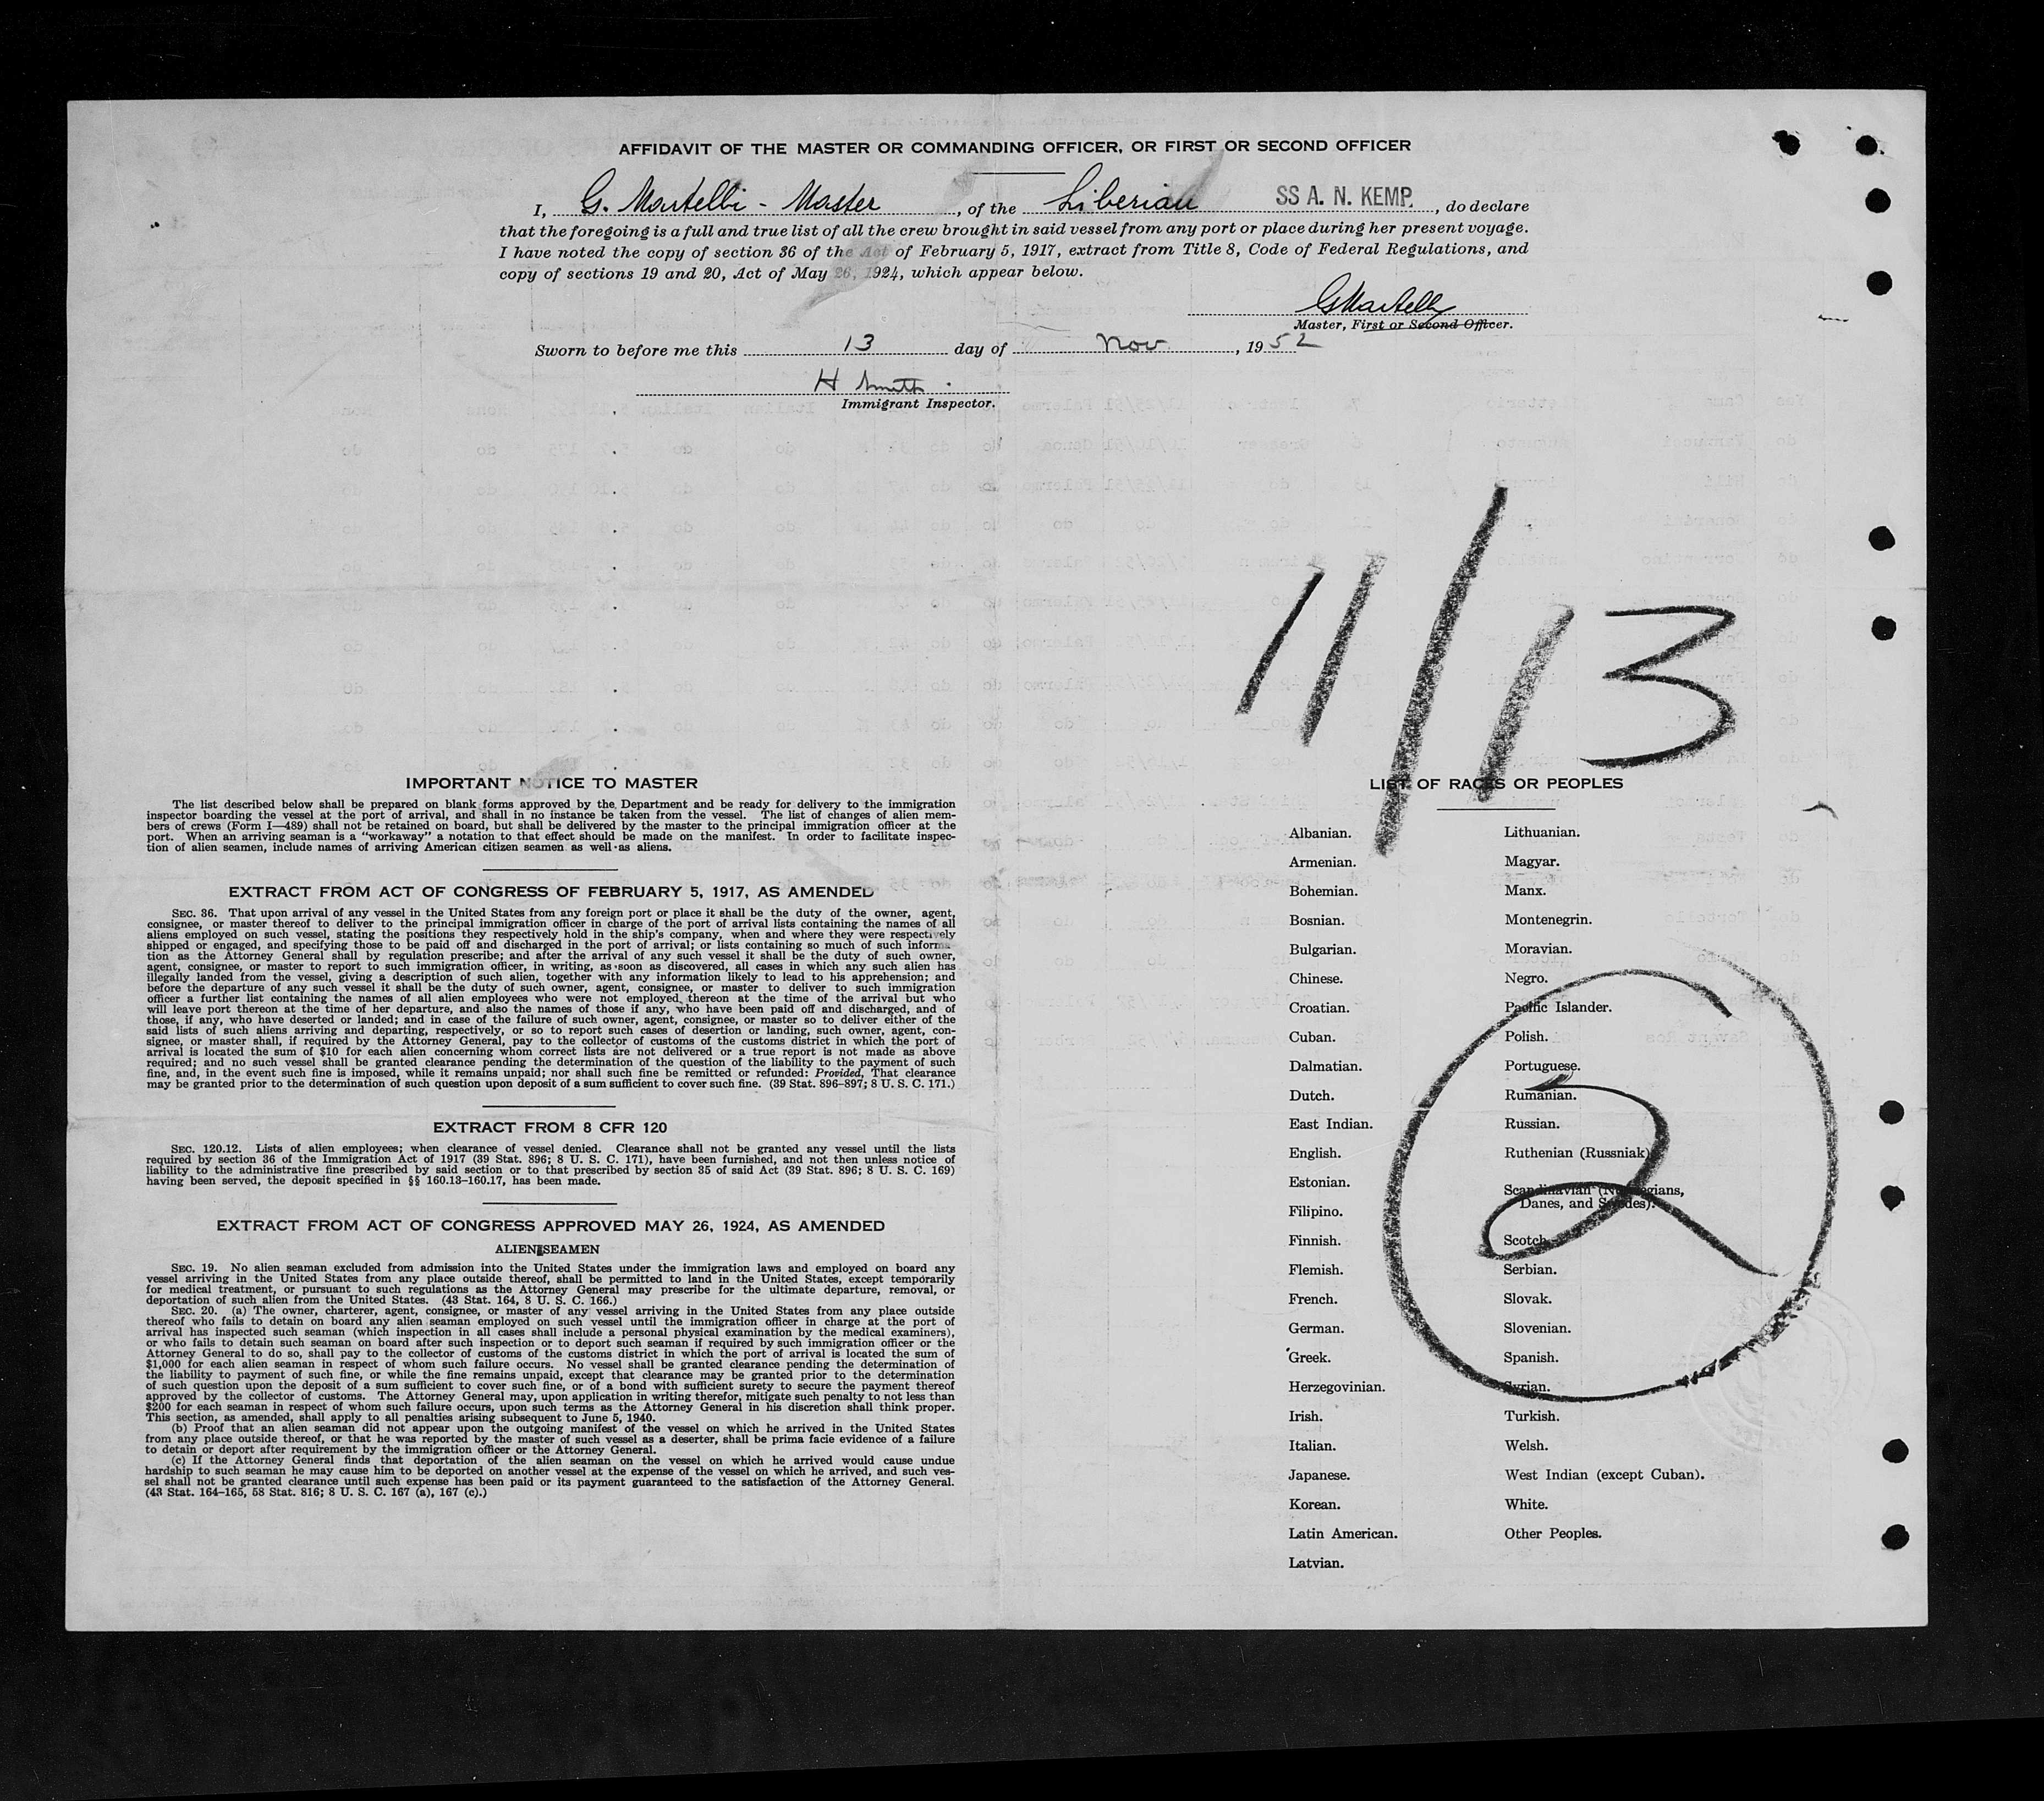 AFFIDAVIT OF THE MASTER OR COMMANDING OFFICER, OR FIRST OR SECOND OFFICER
I, G. Martelli - Master, of the Liberian SS A. N. KEMP., do declare
that the foregoing is a full and true list of all the crew brought in said vessel from any port or place during her present voyage.
I have noted the copy of section 36 of the Act of February 5, 1917, extract from Title 8, Code of Federal Regulations, and
copy of sections 19 and 20, Act of May 26, 1924, which appear below.
GMartelli
Master, First or Second Officer.
Sworn to before me this 13 day of Nov, 1952
H Smith
Immigrant Inspector.
11/13
IMPORTANT NOTICE TO MASTER
The list described below shall be prepared on blank forms approved by the Department and be ready for delivery to the immigration
inspector boarding the vessel at the port of arrival, and shall in no instance be taken from the vessel. The list of changes of alien mem-
bers of crews (Form I—489) shall not be retained on board, but shall be delivered by the master to the principal immigration officer at the
port. When an arriving seaman is a "workaway" a notation to that effect should be made on the manifest. In order to facilitate inspec-
tion of alien seamen, include names of arriving American citizen seamen as well as aliens.
EXTRACT FROM ACT OF CONGRESS OF FEBRUARY 5, 1917, AS AMENDED
SEC. 36. That upon arrival of any vessel in the United States from any foreign port or place it shall be the duty of the owner, agent,
consignee, or master thereof to deliver to the principal immigration officer in charge of the port of arrival lists containing the names of all
aliens employed on such vessel, stating the positions they respectively hold in the ship's company, when and where they were respectively
shipped or engaged, and specifying those to be paid off and discharged in the port of arrival; or lists containing so much of such informa-
tion as the Attorney General shall by regulation prescribe; and after the arrival of any such vessel it shall be the duty of such owner,
agent, consignee, or master to report to such immigration officer, in writing, as soon as discovered, all cases in which any such alien has
illegally landed from the vessel, giving a description of such alien, together with any information likely to lead to his apprehension; and
before the departure of any such vessel it shall be the duty of such owner, agent, consignee, or master to deliver to such immigration
officer a further list containing the names of all alien employees who were not employed thereon at the time of the arrival but who
will leave port thereon at the time of her departure, and also the names of those if any, who have been paid off and discharged, and of
those, if any, who have deserted or landed; and in case of the failure of such owner, agent, consignee, or master so to deliver either of the
said lists of such aliens arriving and departing, respectively, or so to report such cases of desertion or landing, such owner, agent, con-
signee, or master shall, if required by the Attorney General, pay to the collector of customs of the customs district in which the port of
arrival is located the sum of $10 for each alien concerning whom correct lists are not delivered or a true report is not made as above
required; and no such vessel shall be granted clearance pending the determination of the question of the liability to the payment of such
fine, and, in the event such fine is imposed, while it remains unpaid; nor shall such fine be remitted or refunded: Provided, That clearance
may be granted prior to the determination of such question upon deposit of a sum sufficient to cover such fine. (39 Stat. 896-897; 8 U. S. C. 171.)
EXTRACT FROM 8 CFR 120
SEC. 120.12. Lists of alien employees; when clearance of vessel denied. Clearance shall not be granted any vessel until the lists
required by section 36 of the Immigration Act of 1917 (39 Stat. 896; 8 U. S. C. 171), have been furnished, and not then unless notice of
liability to the administrative fine prescribed by said section or to that prescribed by section 35 of said Act (39 Stat. 896; 8 U. S. C. 169)
having been served, the deposit specified in §§ 160.13-160.17, has been made.
EXTRACT FROM ACT OF CONGRESS APPROVED MAY 26, 1924, AS AMENDED
ALIEN SEAMEN
SEC. 19. No alien seaman excluded from admission into the United States under the immigration laws and employed on board any
vessel arriving in the United States from any place outside thereof, shall be permitted to land in the United States, except temporarily
for medical treatment, or pursuant to such regulations as the Attorney General may prescribe for the ultimate departure, removal, or
deportation of such alien from the United States. (43 Stat. 164, 8 U. S. C. 166.)
SEC. 20. (a) The owner, charterer, agent, consignee, or master of any vessel arriving in the United States from any place outside
thereof who fails to detain on board any alien seaman employed on such vessel until the immigration officer in charge at the port of
arrival has inspected such seaman (which inspection in all cases shall include a personal physical examination by the medical examiners),
or who fails to detain such seaman on board after such inspection or to deport such seaman if required by such immigration officer or the
Attorney General to do so, shall pay to the collector of customs of the customs district in which the port of arrival is located the sum of
$1,000 for each alien seaman in respect of whom such failure occurs. No vessel shall be granted clearance pending the determination of
the liability to payment of such fine, or while the fine remains unpaid, except that clearance may be granted prior to the determination
of such question upon the deposit of a sum sufficient to cover such fine, or of a bond with sufficient surety to secure the payment thereof
approved by the collector of customs. The Attorney General may, upon application in writing therefor, mitigate such penalty to not less than
$200 for each seaman in respect of whom such failure occurs, upon such terms as the Attorney General in his discretion shall think proper.
This section, as amended, shall apply to all penalties arising subsequent to June 5, 1940.
(b) Proof that an alien seaman did not appear upon the outgoing manifest of the vessel on which he arrived in the United States
from any place outside thereof, or that he was reported by the master of such vessel as a deserter, shall be prima facie evidence of a failure
to detain or deport after requirement by the immigration officer or the Attorney General.
(c) If the Attorney General finds that deportation of the alien seaman on the vessel on which he arrived would cause undue
hardship to such seaman he may cause him to be deported on another vessel at the expense of the vessel on which he arrived, and such ves-
sel shall not be granted clearance until such expense has been paid or its payment guaranteed to the satisfaction of the Attorney General.
(43 Stat. 164-165, 58 Stat. 816; 8 U. S. C. 167 (a), 167 (c).)
LIST OF RACES OR PEOPLES
Albanian.
Armenian.
Bohemian.
Bosnian.
Bulgarian.
Chinese.
Croatian.
Cuban.
Dalmatian.
Dutch.
East Indian.
English.
Estonian.
Filipino.
Finnish.
Flemish.
French.
German.
Greek.
Herzegovinian.
Irish.
Italian.
Japanese.
Korean.
Latin American.
Latvian.
Lithuanian.
Magyar.
Manx.
Montenegrin.
Moravian.
Negro.
Pacific Islander.
Polish.
Portuguese.
Rumanian.
Russian.
Ruthenian (Russniak)
Scandinavian (Norwegians,
Danes, and Swedes).
Scotch.
Serbian.
Slovak.
Slovenian.
Spanish.
Syrian.
Turkish.
Welsh.
West Indian (except Cuban).
White.
Other Peoples.
2